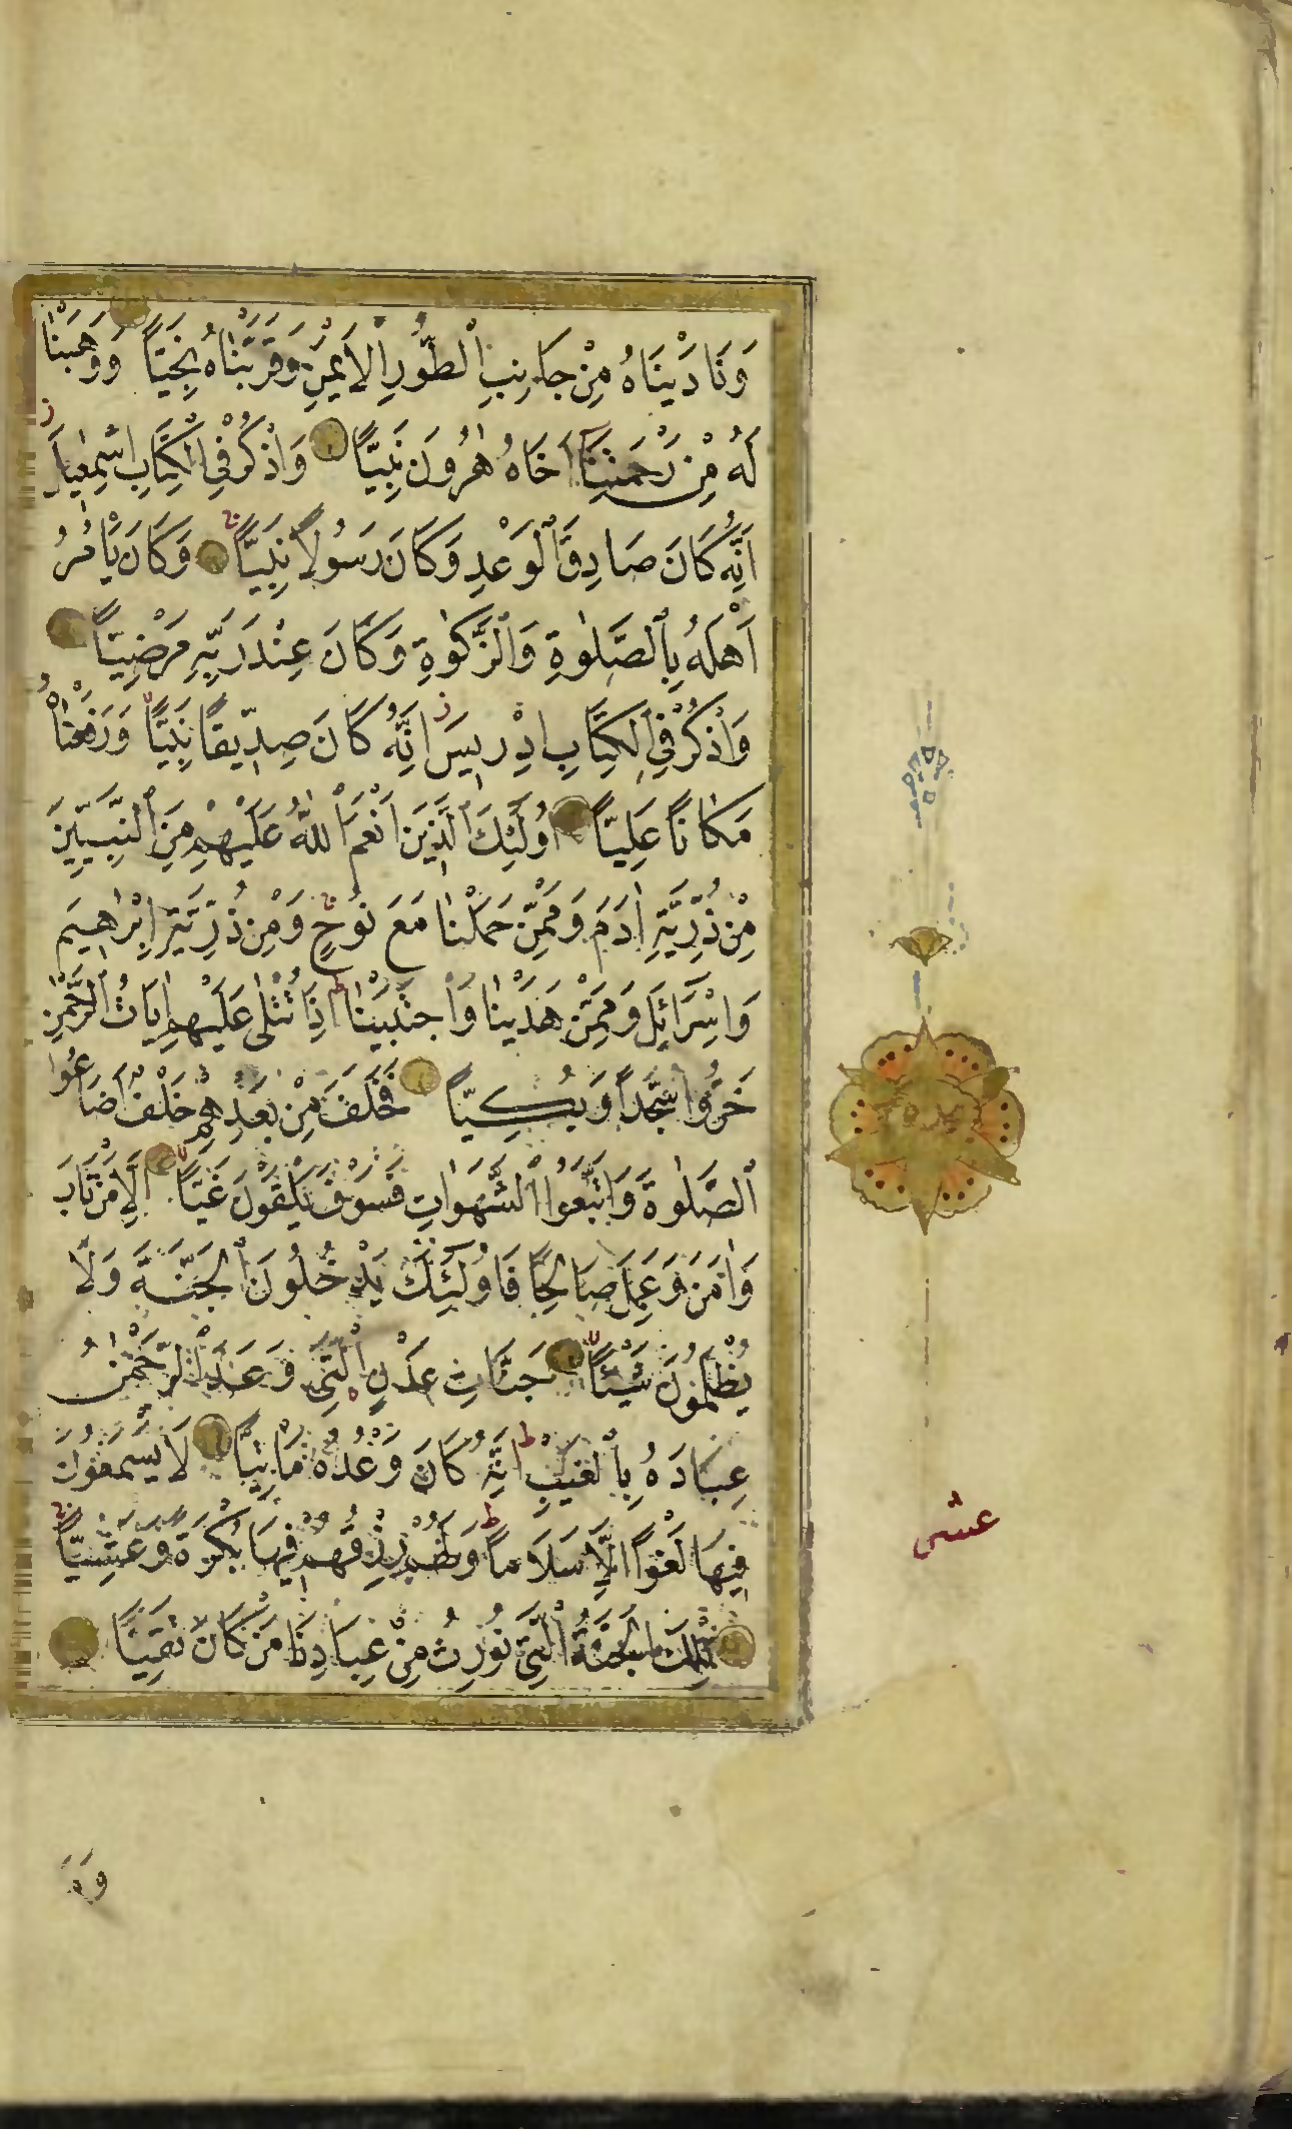 وَنَادَيْنَاهُ مِنْ جَانِبِ الْطُّورِ الْاَيْمَنِ وَقَرَّبْنَاهُ نَجِيًّا وَوَهَبْنَا
لَهُ مِنْ رَحْمَتِنَٓا اَخَاهُ هٰرُونَ نَبِيًّا وَاذْكُرْ فِي الْكِتَابِ اِسْمٰعِيلَ
اِنَّهُ كَانَ صَادِقَ الْوَعْدِ وَكَانَ رَسُولاً نَبِيًّا وَكَانَ يَأْمُرُ
اَهْلَهُ بِالصَّلٰوةِ وَالزَّكٰوةِ وَكَانَ عِنْدَ رَبِّهِ مَرْضِيًّا
وَاذْكُرْ فِي الْكِتَابِ اِدْرِيسَ اِنَّهُ كَانَ صِدِّيقًا نَبِيًّا وَرَفَعْنَاهُ
مَكَانًا عَلِيًّا اُولٰٓئِكَ الَّذِينَ اَنْعَمَ اللّٰهُ عَلَيْهِمْ مِنَ النَّبِيِّينَ
مِنْ ذُرِّيَّةِ اٰدَمَ وَمِمَّنْ حَمَلْنَا مَعَ نُوحٍ وَمِنْ ذُرِّيَّةِ اِبْرٰهِيمَ
وَاِسْرَٓائِلَ وَمِمَّنْ هَدَيْنَا وَاجْتَبَيْنَا اِذَا تُتْلٰى عَلَيْهِمْ اٰيَاتُ الرَّحْمٰنِ
خَرُّوا سُجَّداً وَبُكِيًّا فَخَلَفَ مِنْ بَعْدِهِمْ خَلْفٌ اَضَاعُوا
الصَّلٰوةَ وَاتَّبَعُوا الشَّهَوَاتِ فَسَوْفَ يَلْقَوْنَ غَيًّا اِلَّا مَنْ تَابَ
وَاٰمَنَ وَعَمِلَ صَالِحًا فَاُولٰٓئِكَ يَدْخُلُونَ الْجَنَّةَ وَلَا
يُظْلَمُونَ شَيْئًا جَنَّاتِ عَدْنٍ الَّتِي وَعَدَ الرَّحْمٰنُ
عِبَادَهُ بِالْغَيْبِ اِنَّهُ كَانَ وَعْدُهُ مَأْتِيًّا لَا يَسْمَعُونَ
فِيهَا لَغْوًا اِلَّا سَلَامًا وَلَهُمْ رِزْقُهُمْ فِيهَا بُكْرَةً وَعَشِيًّا
تِلْكَ الْجَنَّةُ الَّتِي نُورِثُ مِنْ عِبَادِنَا مَنْ كَانَ تَقِيًّا